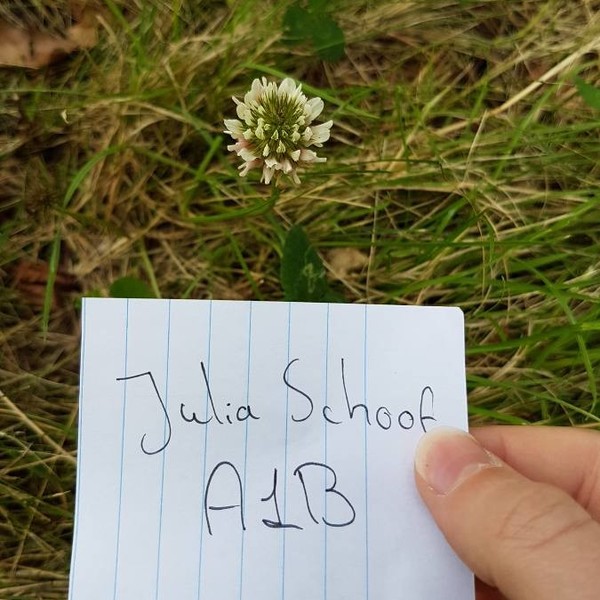 Julia Schoof
A1B